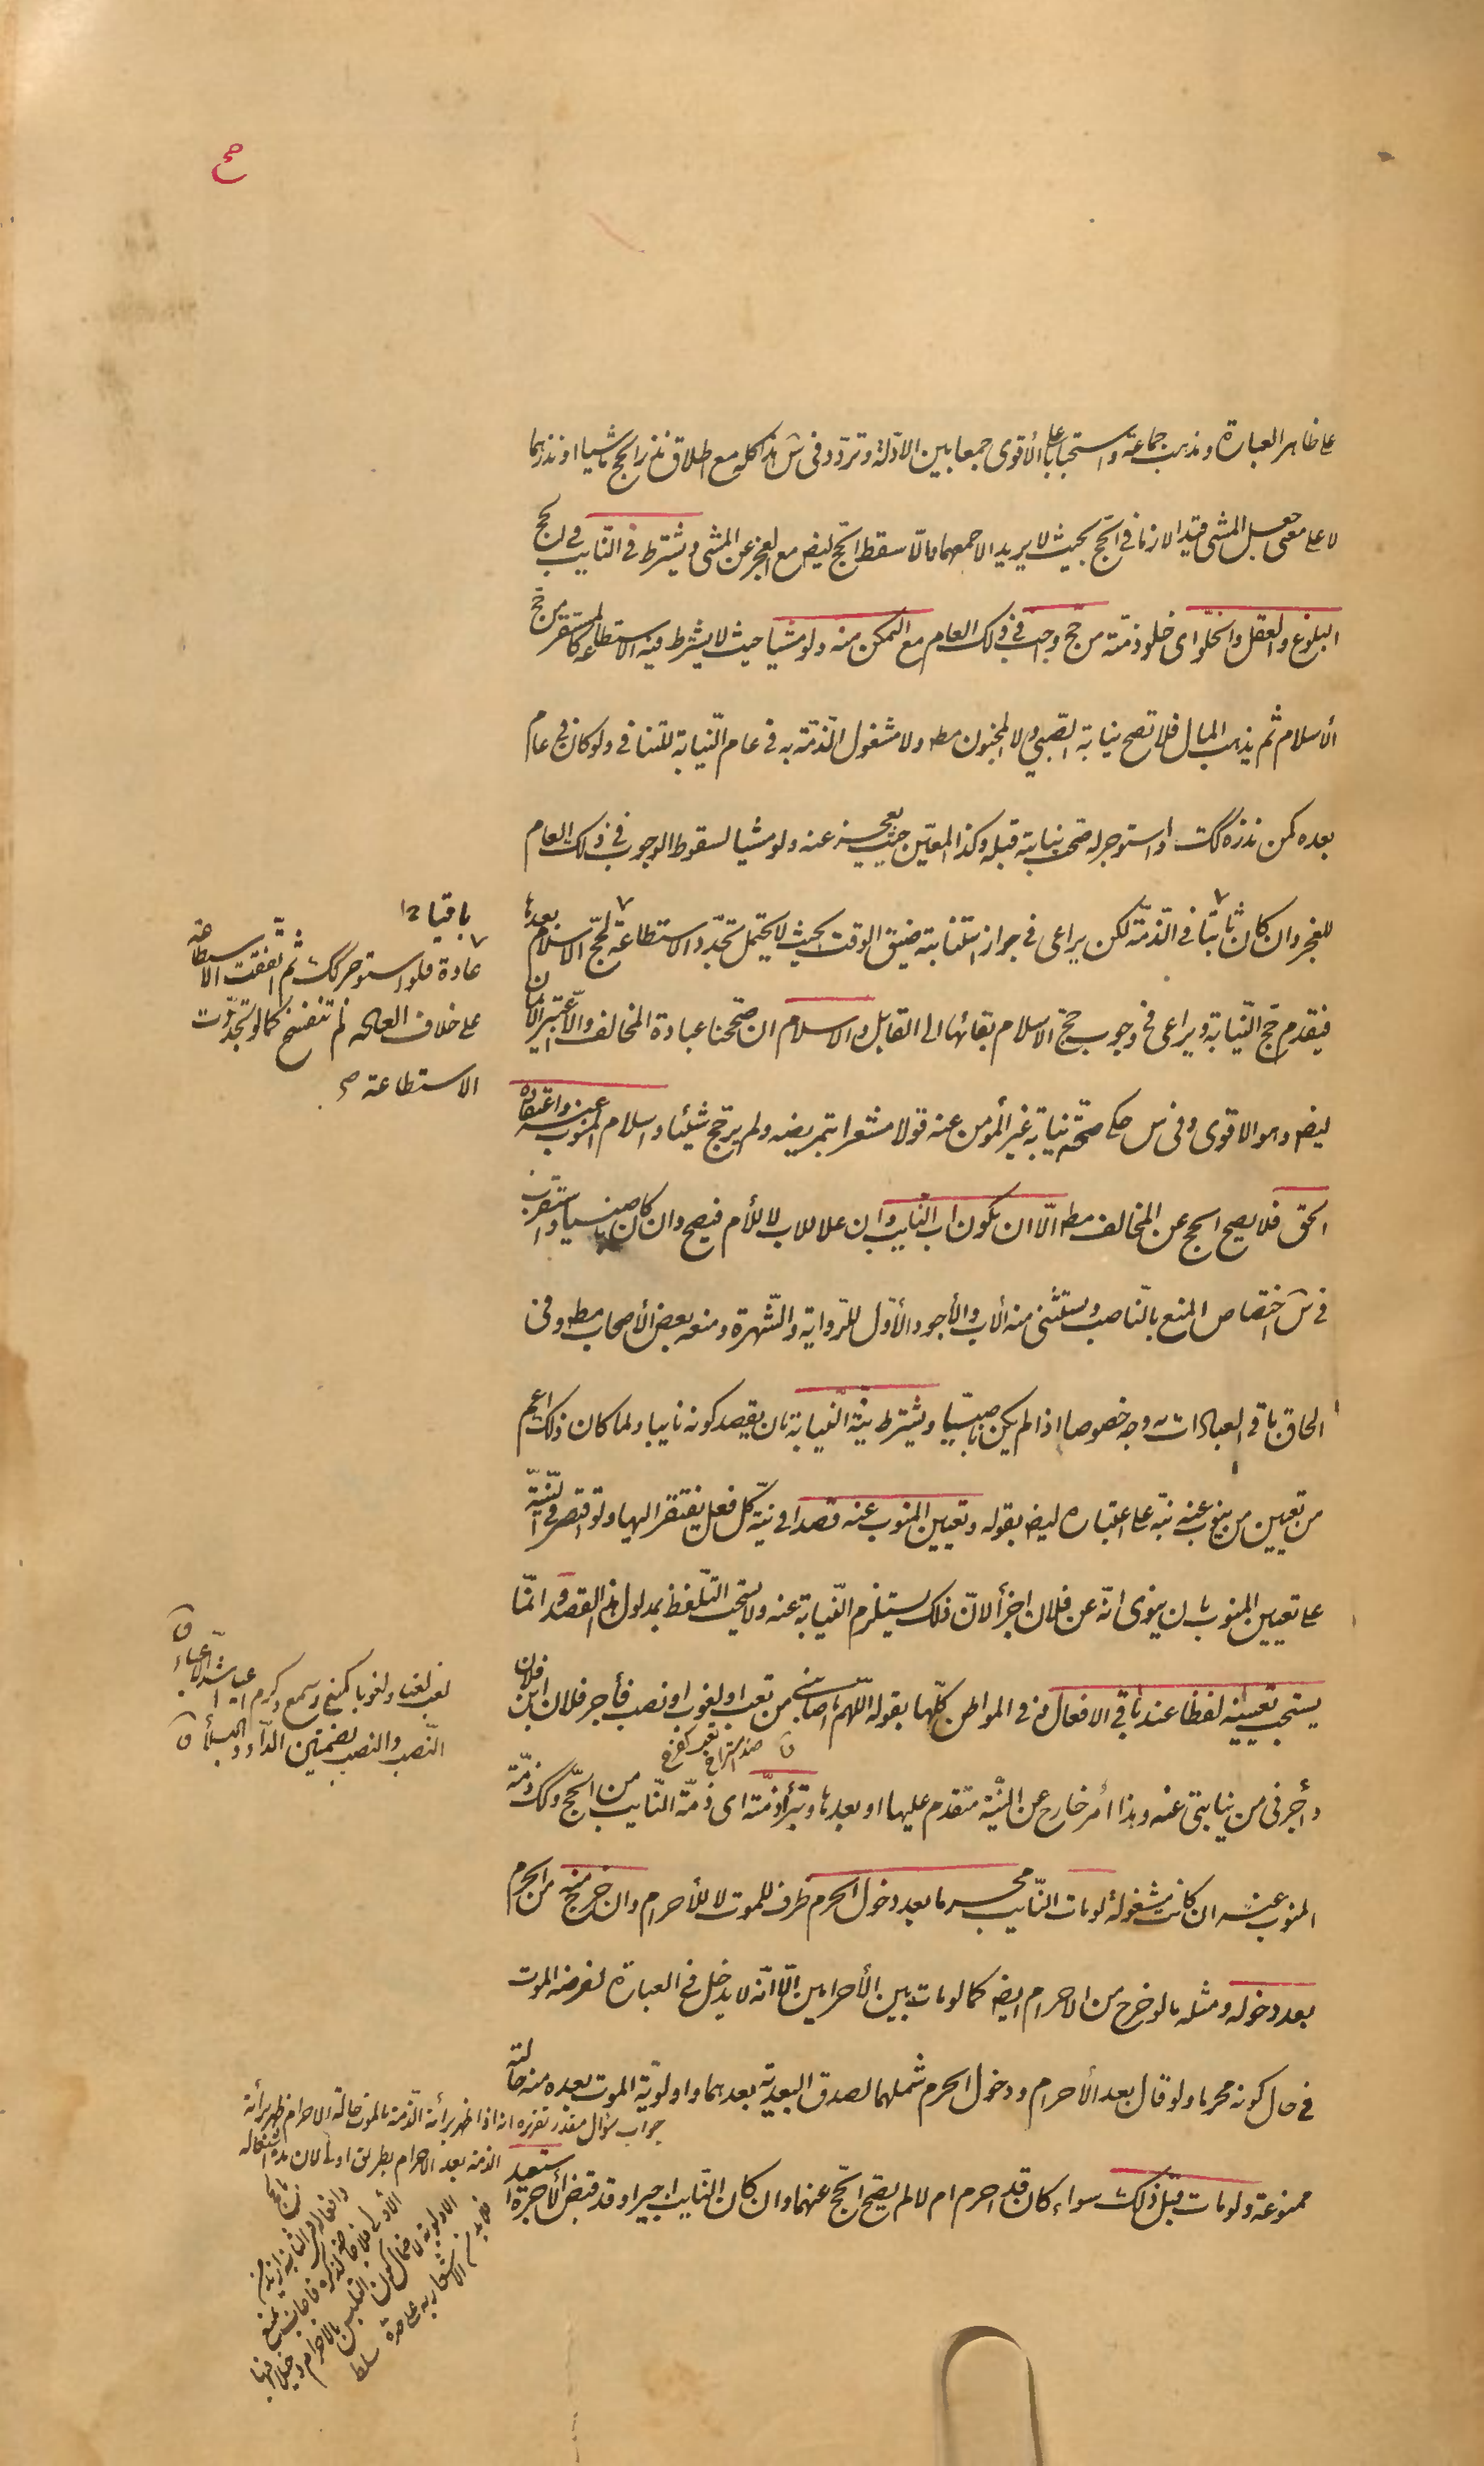 على ظاهر العبارة ومذهب جماعة واستحبابا على الأقوى جمعا بين الادلة وتردد وفى س هذا كله مع اطلاق نذر الحج ماشيا او نذرهما
لا على معنى جعل المشى قيدا لازما فى الحج بحيث لا يريد الا جمعهما والا سقط الحج ايض مع العجز عن المشى ويشترط فى النايب فى الحج
البلوغ والعقل والخلو اى خلو ذمته من حج واجب فى ذلك العام مع التمكن منه ولو مشيا حيث لا يشترط فيه الاستطاعة كالمستقر من حج
الاسلام ثم يذهب المال فلا تصح نيابة الصبى ولا المجنون مط ولا مشغول الذمة به فى عام النيابة للتنافى ولو كان فى عام
بعده كمن نذره كك واستوجر له صحت نيابته قبله وكذا المعين حيث يعجز عنه ولو مشيا لسقوط الوجوب فى ذلك العام
للعجز وان كان ثابتا فى الذمة لكن يراعى فى جواز استنابته ضيق الوقت بحيث لا يحتمل تجدد الاستطاعة لحج الاسلام بعدها
فيقدم حج النيابة ويراعى فى وجوب حج الاسلام بقائها الى القابل والاسلام ان صححنا عبادة المخالف والا اعتبر الايمان
ايض وهو الاقوى وفى س حكى صحة نيابة غير المؤمن عنه قولا مشعرا بتمريضه ولم يرجح شيئا واسلام المنوب عنه واعتقاده
الحق فلا يصح الحج عن المخالف مط الا ان يكون اب النايب وان علا للاب لا للأم فيصح وان كان ناصبيا واستقرب
فى س اختصاص المنع بالناصب ويستثنى منه الاب والأجود الأول للرواية والشهرة ومنعه بعض الأصحاب مط وفى
الحاق باقى العبادات به وجه خصوصا اذا لم يكن ناصبيا ويشترط نية النيابة بان يقصد كونه نايبا ولما كان ذلك اعم
من تعيين من ينوب عنه نبه على اعتباره ايض بقوله وتعيين المنوب عنه قصدا فى نية كل فعل يفتقر اليها ولو اقتصر فى النية
على تعيين المنوب بان ينوى انه عن فلان اجزأ لان ذلك يستلزم النيابة عنه ولا يستحب التلفظ بمدلول هذا القصد وانما
يستحب تعيينه لفظا عند باقى الافعال وفى المواطن كلها بقوله اللهم ما اصابنى من تعب او لغوب او نصب فأجر فلان ابن فلان
ضد استراح تعب كفرح ق
وأجرنى من نيابتى عنه وهذا أمر خارج عن النية متقدم عليها او بعدها وتبرأ ذمته اى ذمة النايب من الحج وكك ذمة
المنوب عنه ان كانت مشغولة لو مات النايب محرما بعد دخول الحرم ظرف للموت لا للأحرام وان خرج منه من الحرم
بعد دخوله ومثله ما لو خرج من الاحرام ايض كما لو مات بين الأحرامين الا انه لا يدخل فى العبارة لفرضه الموت
فى حال كونه محرما ولو قال بعد الأحرام ودخول الحرم شملهما لصدق البعدية بعدهما واولوية الموت بعده منه حالته
ممنوعة ولو مات قبل ذلك سواء كان قد احرم ام لا لم يصح الحج عنهما وان كان النايب اجيرا وقد قبض الأجرة استعيد
باقيا
عادة فلو استوجر كك ثم اتفقت الاستطاعة
على خلاف العادة لم تنفسخ كما لو تجددت
الاستطاعة
لغب لغبا ولغوبا كمنع وسمع وكرم اعيا اشد الاعياء ق
النصب والنصب بضمتين الداء والبلاء ق
جواب سؤال مقدر تقريره انه اذا ظهر برأئة الذمة بالموت حالة الاحرام ظهر برأئة
الذمة بعد الاحرام بطريق اولى لان